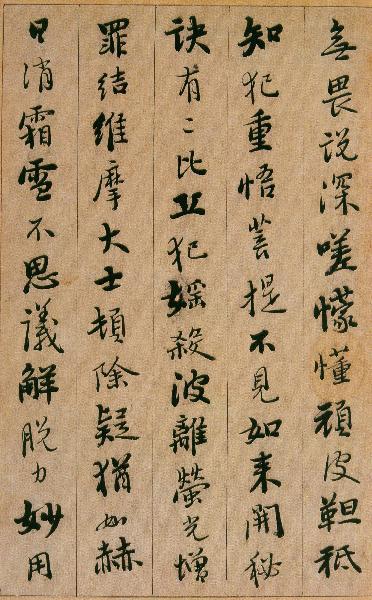 無畏說深嗟懞懂頑皮靼秖
知犯重悟菩提不見如來開秘
訣有二比丘犯婬殺波離螢光增
罪結維摩大士頓除疑猶如赫
日消霜雪不思議解脫力妙用